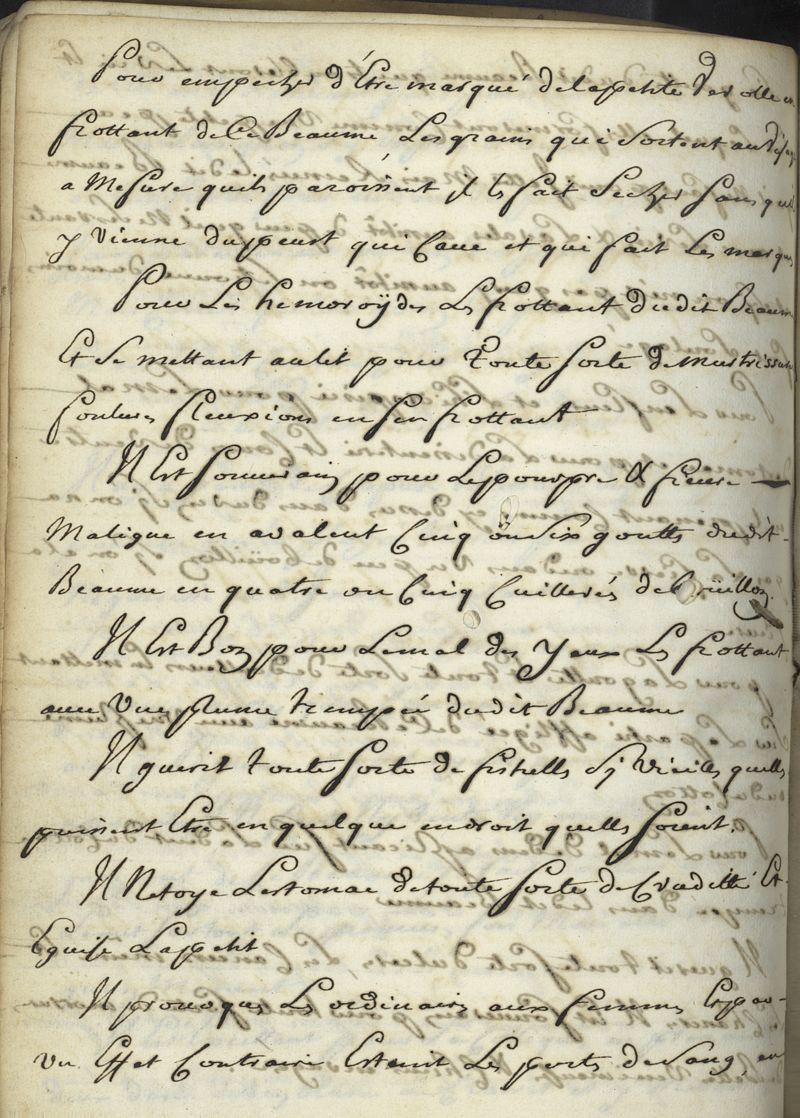 Pour empecher d'Etre marqué de la petite verolle en
frottant de ce Beaume Les grains qui sortent au visage
a Mesure quils paroissent jl les fait secher sans quil
y vienne du peust qui cave et qui fait Les marques
Pour Les hemoroÿdes Les frottant dudit Beaume
Et se mettant au lit pour Toute sorte de murtrissure
foulures fleuxions en sen frottant
Jl Est souverain pour Le pourpre & fievre
Maligne en avalent Cinq ou six gouttes dudit
Beaume en quatre ou Cinq Cuillerés de Boüillon
Jl Est Bon pour Le mal des yeux Les frottant
avec une plume trempée dudit Beaume
Jl guerit toute sorte de fistulles sy vieilles quelles
puissent Etre en quelque endroit quelles soient.
Jl Netoye Lestomac de toute sorte de Crudité Et
Eguise Lapetit
Jl provoque Les ordinaires aux femmes Et par
un Effet Contraire Estenit Les perts de sang, en